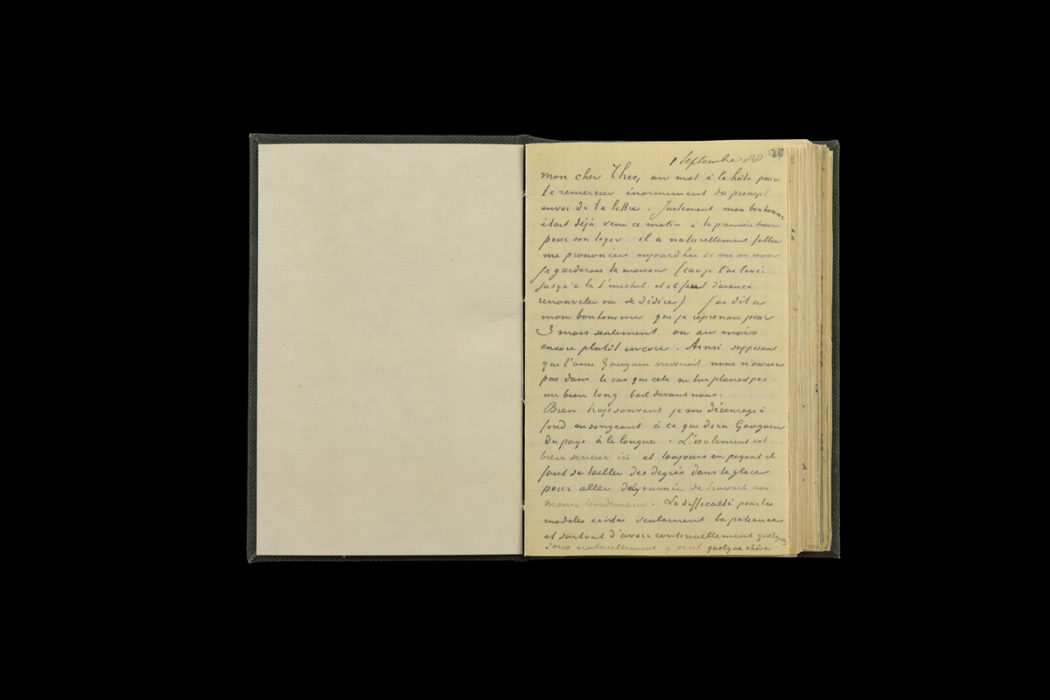 1 Septembre 88
mon cher Theo, un mot à la hâte pour
te remercier énormement du prompt
envoi de ta lettre. Justement mon bonhomme
était déjà venu ce matin à la première heure
pour son loyer. il a naturellement fallu
me prononcer aujourd'hui si oui ou non
je garderais la maison (car je l'ai louée
jusqu'à la S' michel et il faut d'avance
renouveler ou se dédire) j'ai dit à
mon bonhomme que je reprenais pour
3 mois seulement ou au mois
encore plutôt encore. Ainsi supposant
que l'ami Gauguin arriverait nous n'aurions
pas dans le cas que cela ne lui plairait pas
un bien long bail devant nous.
Bien trop souvent je me décourage à
fond en songeant à ce que dira Gauguin
du pays à la longue - L'isolement est
bien serieux ici et toujours en payant il
faut se tailler des degrés dans la glace
pour aller d'une journée de travail au
même lendemain. La difficulté pour les
modèles existe seulement la patience
et surtout d'avoir continuellement quelques
sous naturellement y peut quelque chose